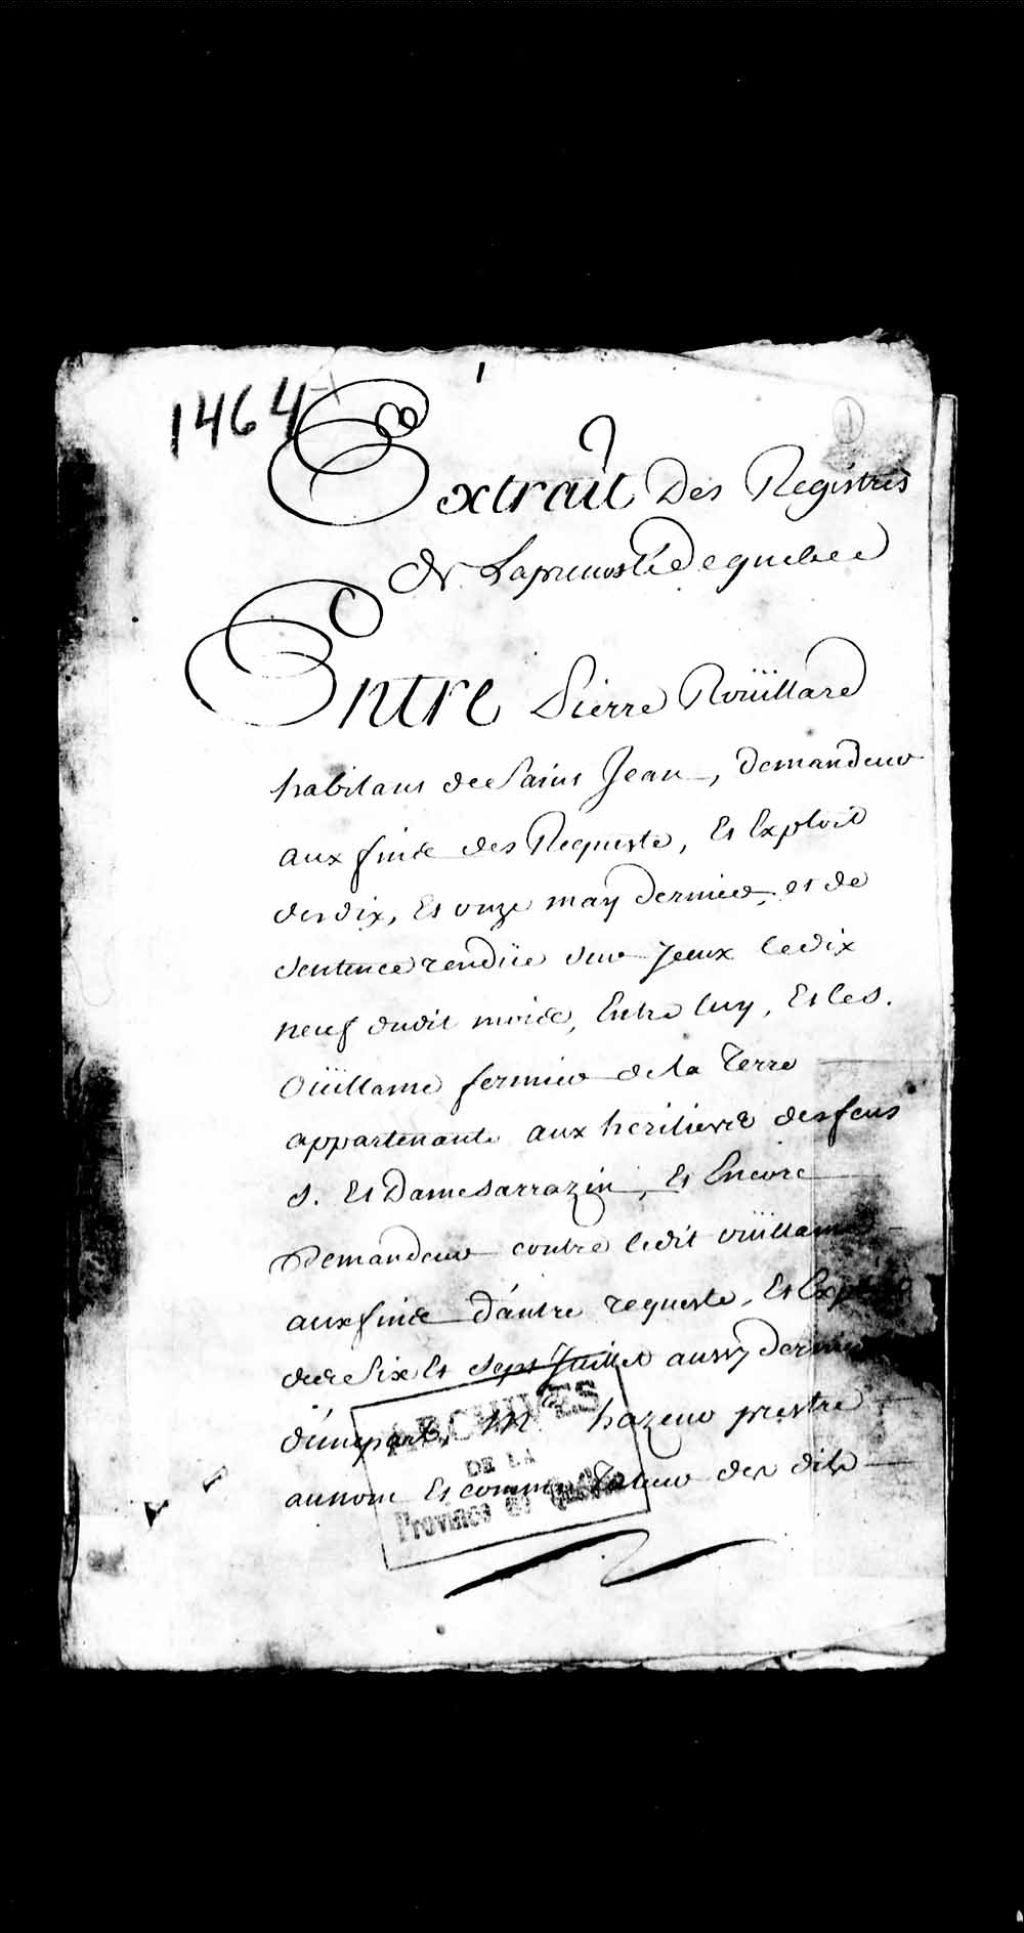 1
1464
Extrait Des Registres
de Laprevosté de quebec
Entre Pierre Roüillard
habitant de Saint Jean, demandeur
aux fins des Requeste, Et Exploit
des dix, Et onze may dernier, et de
Sentence rendüe sur Jeux ledix
neuf dudit mois, Entre luy, Et les.
Oüillame fermier de la Terre
appartenante aux heritiers desfeus
S. Et Dame Sarrazin, Et Encore
Demandeur contre ledit oüillame
aux fins d'autre requeste, Et Exploit
des Six Et Sept Juillet aussy dernier
d'une part, Mre hazeur prestre
au nom Et comme Tuteur des dits
ARCHIVES
DE LA
Province de Québec